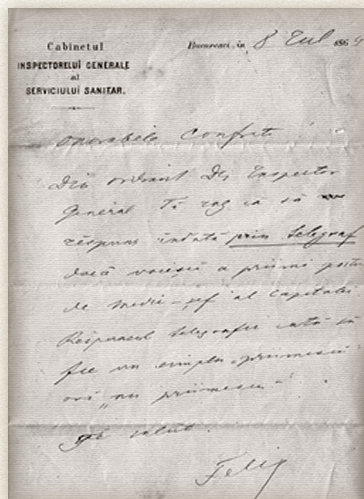 Cabinetul
INSPECTORELUI GENERALE
al
SERVICIULUI SANITAR.
Bucuresci, in 8 Iul 1864
onorabile Confrate!
Din ordinul Dlui Inspector
General Te rog ca să
răspunzi îndată prin telegraf
dacă voiesci a priimi postu
de medic-șef al Capitalei
Răspunsul telegrafic cată să
fie un simplu „priimescu"
oră „nu priimescu".
Te salut.
Felix